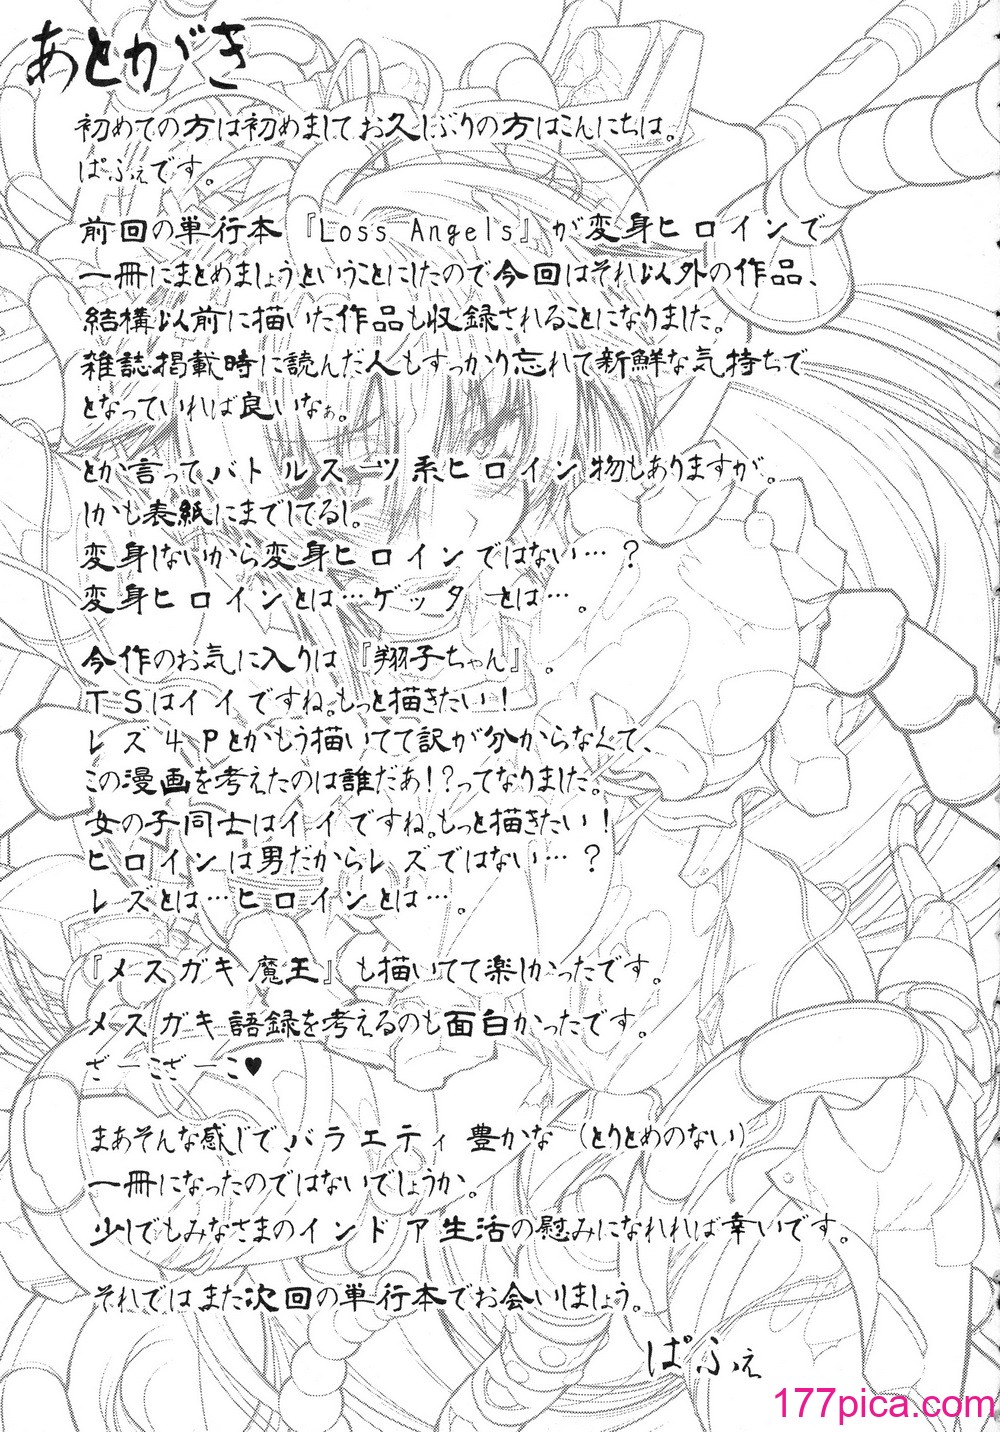 あとがき
初めての方は初めましてお久しぶりの方はこんにちは。
ぱふぇです。
前回の単行本『Loss Angels』が変身ヒロインで
一冊にまとめましょうということにしたので今回はそれ以外の作品、
結構以前に描いた作品も収録されることになりました。
雑誌掲載時に読んだ人もすっかり忘れて新鮮な気持ちで
となっていれば良いなぁ。
とか言って、バトルスーツ系ヒロイン物もありますが。
しかも表紙にまでしてるし。
変身しないから変身ヒロインではない…？
変身ヒロインとは…ゲッターとは…。
今作のお気に入りは『翔子ちゃん』。
TSはイイですね。もっと描きたい！
レズ4Pとかもう描いてて訳が分からなくて、
この漫画を考えたのは誰だあ！？ってなりました。
女の子同士はイイですね。もっと描きたい！
ヒロインは男だからレズではない…？
レズとは…ヒロインとは…。
『メスガキ魔王』も描いてて楽しかったです。
メスガキ語録を考えるのも面白かったです。
ざーこざーこ♥
まあそんな感じで、バラエティ豊かな（とりとめのない）
一冊になったのではないでしょうか。
少しでもみなさまのインドア生活の慰みになれれば幸いです。
それではまた次回の単行本でお会いしましょう。
ぱふぇ
177pica.com